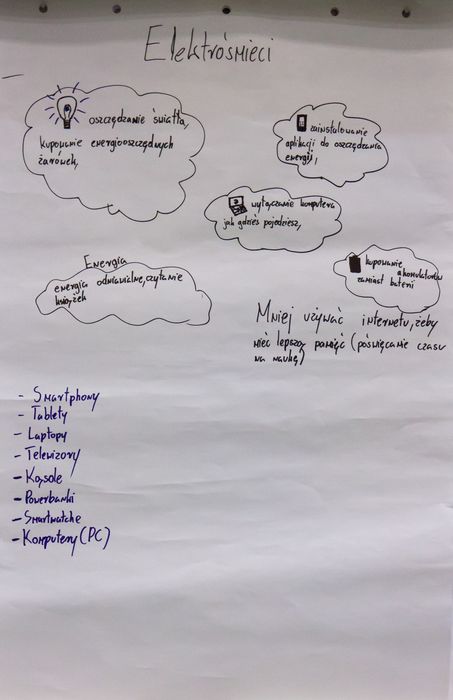 Elektrośmieci
oszczędzanie światła,
kupowanie energooszczędnych
żarówek,
zainstalowanie
aplikacji do oszczędzania
energii,
wyłączanie komputera
jak gdzieś pojedziesz,
kupowanie
akumulatorów
zamiast baterii
Energia
energia odnawialne, czytanie
książek
Mniej używać internetu, żeby
mieć lepszą pamięć (poświęcanie czasu
na naukę)
- Smartphony
- Tablety
- Laptopy
- Telewizory
- Konsole
- Powerbanki
- Smartwatche
- Komputery (PC)